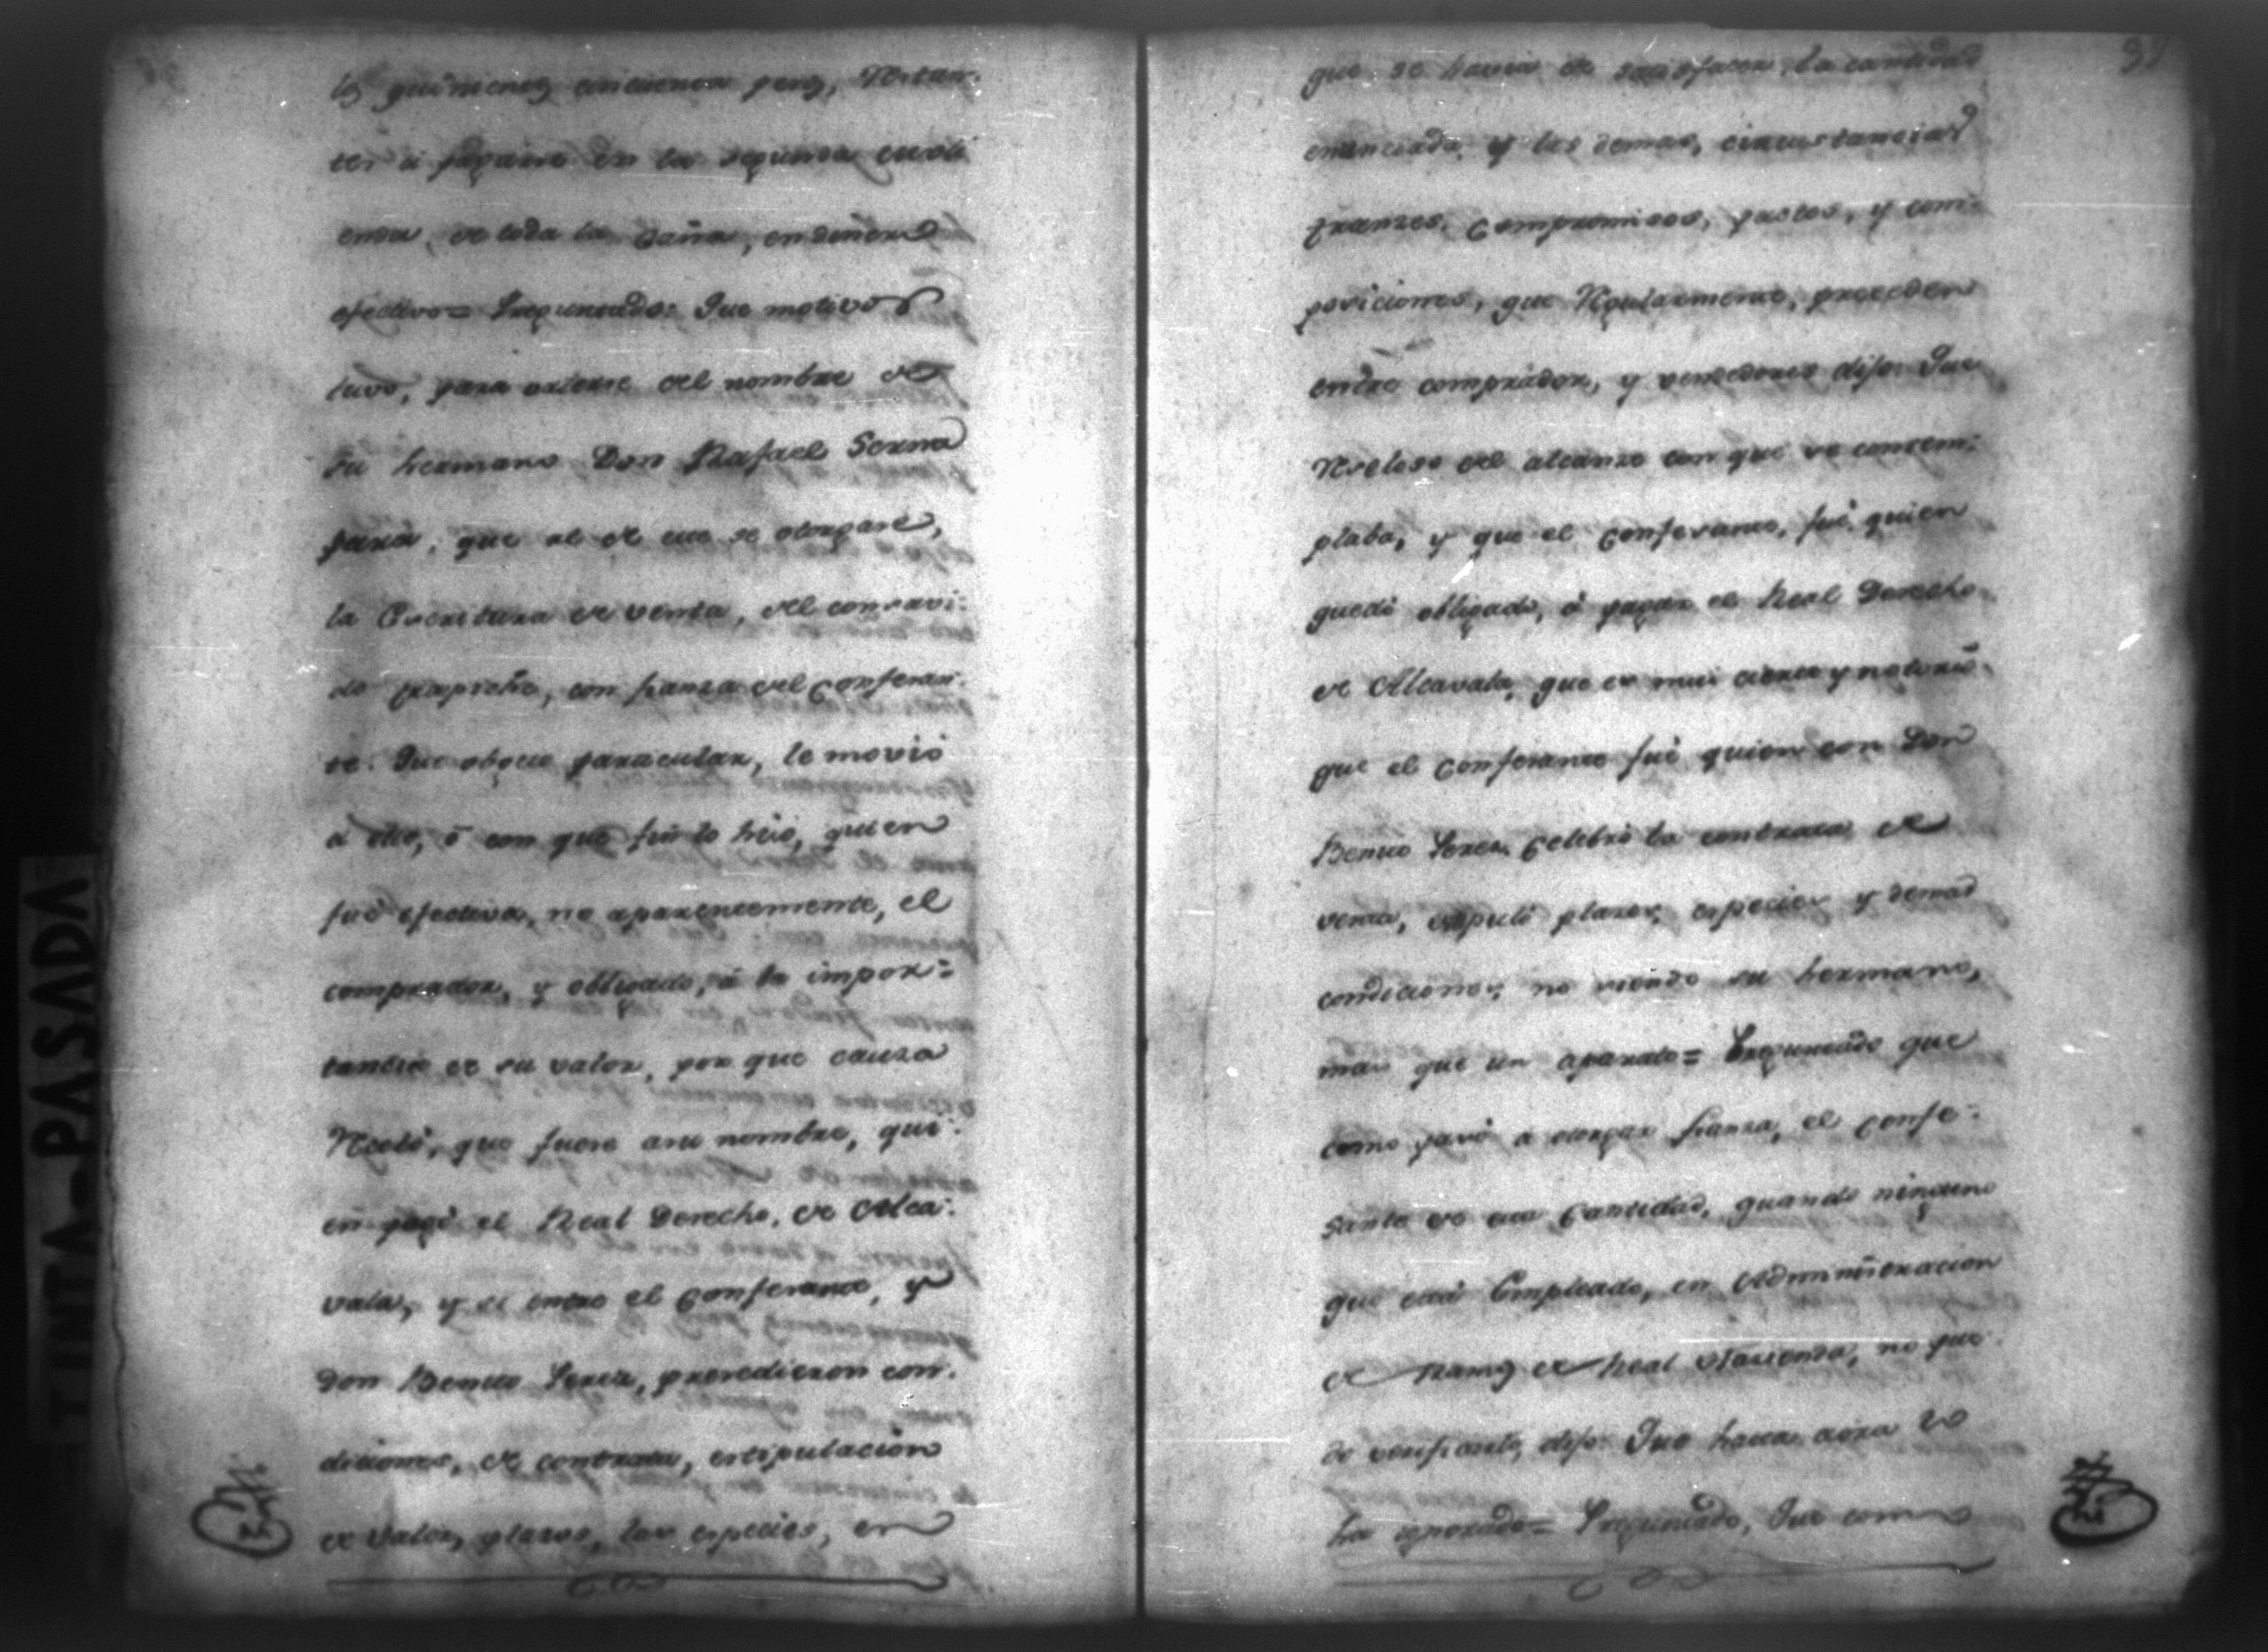 los quinientos cincuenta pesos, restan-
tes á pagarse en la segunda moli
enda, de toda la caña, en dinero
efectivo= Preguntado: Que motivos
tuvo, para valerse del nombre de
su hermano Don Rafael Serna
para, que al de este se otorgare,
la Escritura de venta, del consavi-
do trapiche, con fianza del Confesan-
te. Que obgeto particular, le movió
á ello, ó con que fin lo hizo, quien
fué efectiva, no aparentemente, el
comprador, y obligado, á la impor=
tancia de su valor, por que causa
Receló, que fuere a su nombre, qui-
en pagó el Real Derecho, de Alca-
vala, y si entre el Confesante, y
Don Benito Perez, precedieron con-
diciones, de contrata, estipulación
de valor, plazos, las especies, en
que se havia de satisfacer, la cantidad
enunciada, y las demas, circustancias
franzes, Compromisos, pactos, y com-
posiciones, que Regularmente, preceden
entre comprador, y vendedores dijo: Que
Reseloso del alcanze con que se contem-
plaba, y que el Confesante, fué quien
quedó obligado, á pagar el Real Derecho
de Alcavala, que es mui cierto y notorio
que el Confesante fué quien con Don
Benito Perez Celebró la contrata de
venta, estipuló plazos, especies y demas
condiciones, no siendo su hermano,
mas que un aparato= Preguntado que
como pasó a otorgar fianza, el Confe-
sante de esa Cantidad, quando ninguno
que está Empleado, en Administracion
de Ramos de Real Hacienda, no pue
de verificarlo, dijo: Que hasta aora lo
ha ignorado= Preguntado, Que como
TINTA-PASADA